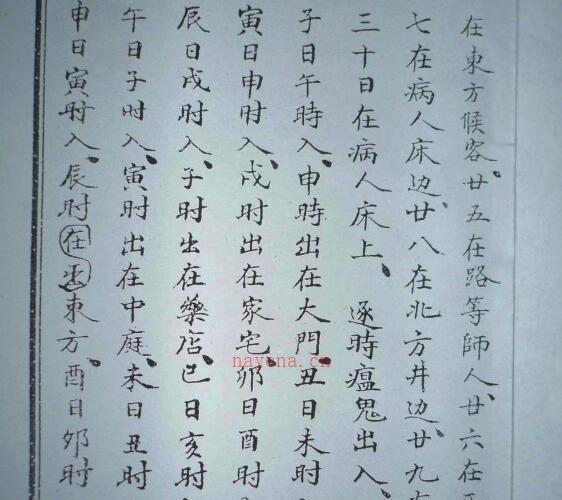 在東方候客。廿五在路等師人、廿六在
七在病人床边、廿八在北方井边、廿九
三十日在病人床上、逐時瘟鬼出入、
子日午時入、申時出在大門、丑日未时
寅日申时入、戌时出在家宅、卯日酉时
辰日戌时入、子时出在藥店、巳日亥时
午日子时入、寅时出在中庭、未日丑时
申日寅时入、辰时在出東方、酉日卯时
nayona.cn